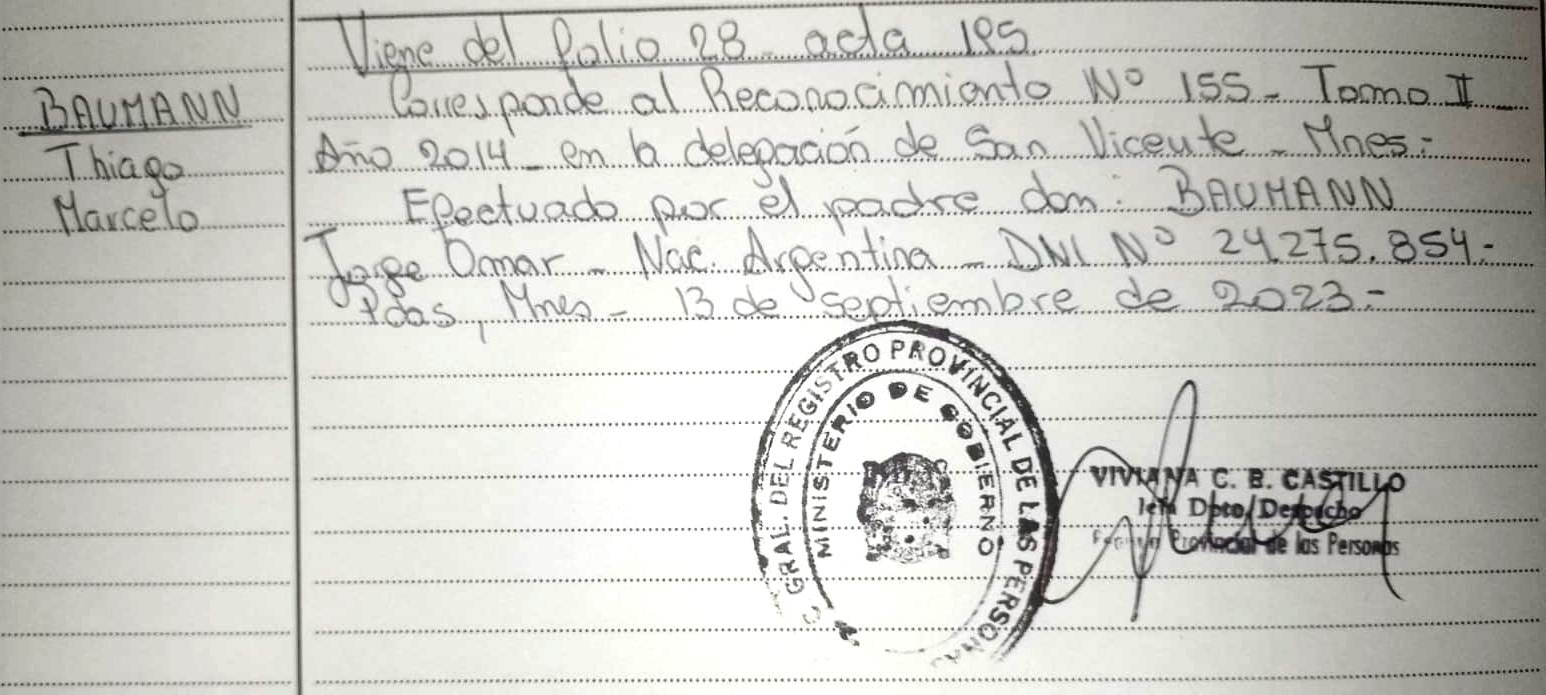 Viene del folio 28 - acta 195
BAUMANN
Thiago
Marcelo
Corresponde al Reconocimiento Nº 155 - Tomo II
Año 2014 - en la delegación de San Vicente - Mnes:-
Efectuado por el padre don: BAUMANN
Jorge Omar - Nac. Argentina - DNI Nº 24.275.854:-
Pdas, Mnes - 13 de septiembre de 2023:-
GRAL. DEL REGISTRO PROVINCIAL DE LAS PERSONAS
MINISTERIO DE GOBIERNO
VIVIANA C. B. CASTILLO
Jefa Dpto. Despacho
Provincial de las Personas